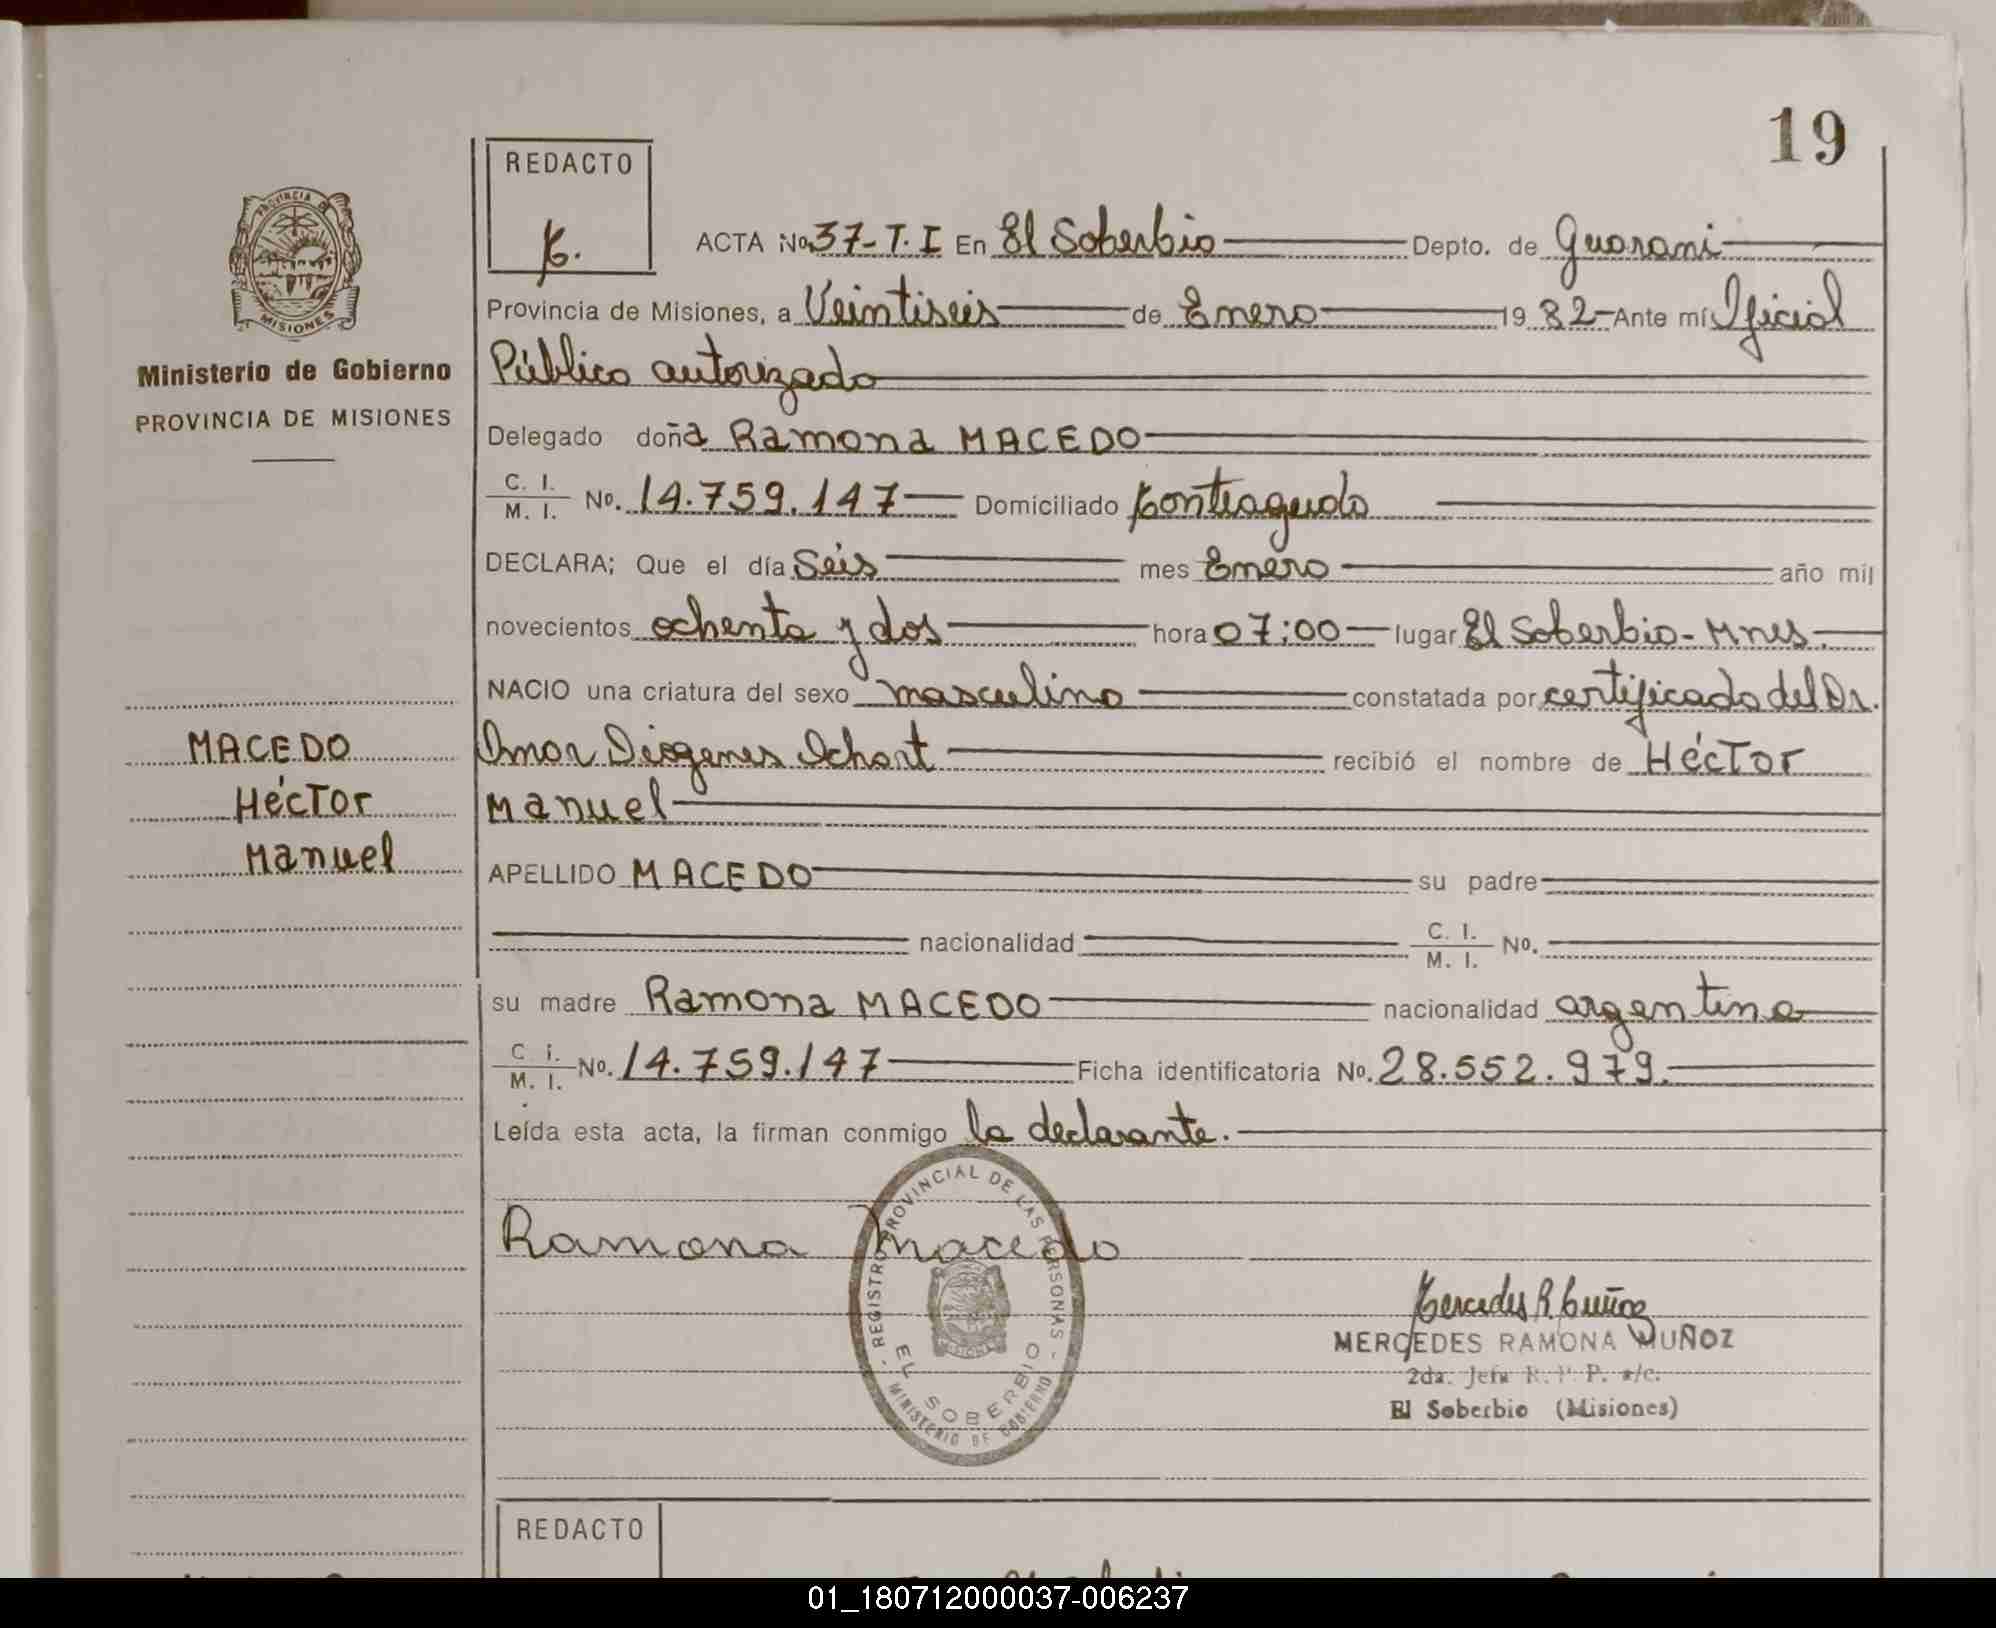 19
REDACTO
PROVINCIA DE
MISIONES
Ministerio de Gobierno
PROVINCIA DE MISIONES
ACTA No. 37-T.I En El Soberbio Depto. de Guarani
Provincia de Misiones, a Veintiseis de Enero 1982 Ante mí Oficial
Público autorizado
Delegado doña Ramona MACEDO
C. I. / M. I. No. 14.759.147 Domiciliado Monteagudo
DECLARA; Que el día Seis mes Enero año mil
novecientos ochenta y dos hora 07:00 lugar El Soberbio-Mnes.
NACIO una criatura del sexo masculino constatada por certificado del Dr.
MACEDO
Héctor
Manuel
Omar Diógenes Ochart recibió el nombre de Héctor
Manuel
APELLIDO MACEDO su padre
nacionalidad C. I. / M. I. No.
su madre Ramona MACEDO nacionalidad argentina
C. I. / M. I. No. 14.759.147 Ficha identificatoria No. 28.552.979.
Leída esta acta, la firman conmigo la declarante.
Ramona Macedo
REGISTRO PROVINCIAL DE LAS PERSONAS
EL SOBERBIO
MINISTERIO DE GOBIERNO
Mercedes R. Muñoz
MERCEDES RAMONA MUÑOZ
2da. Jefa R. P. P. a/c.
El Soberbio (Misiones)
REDACTO
01_180712000037-006237